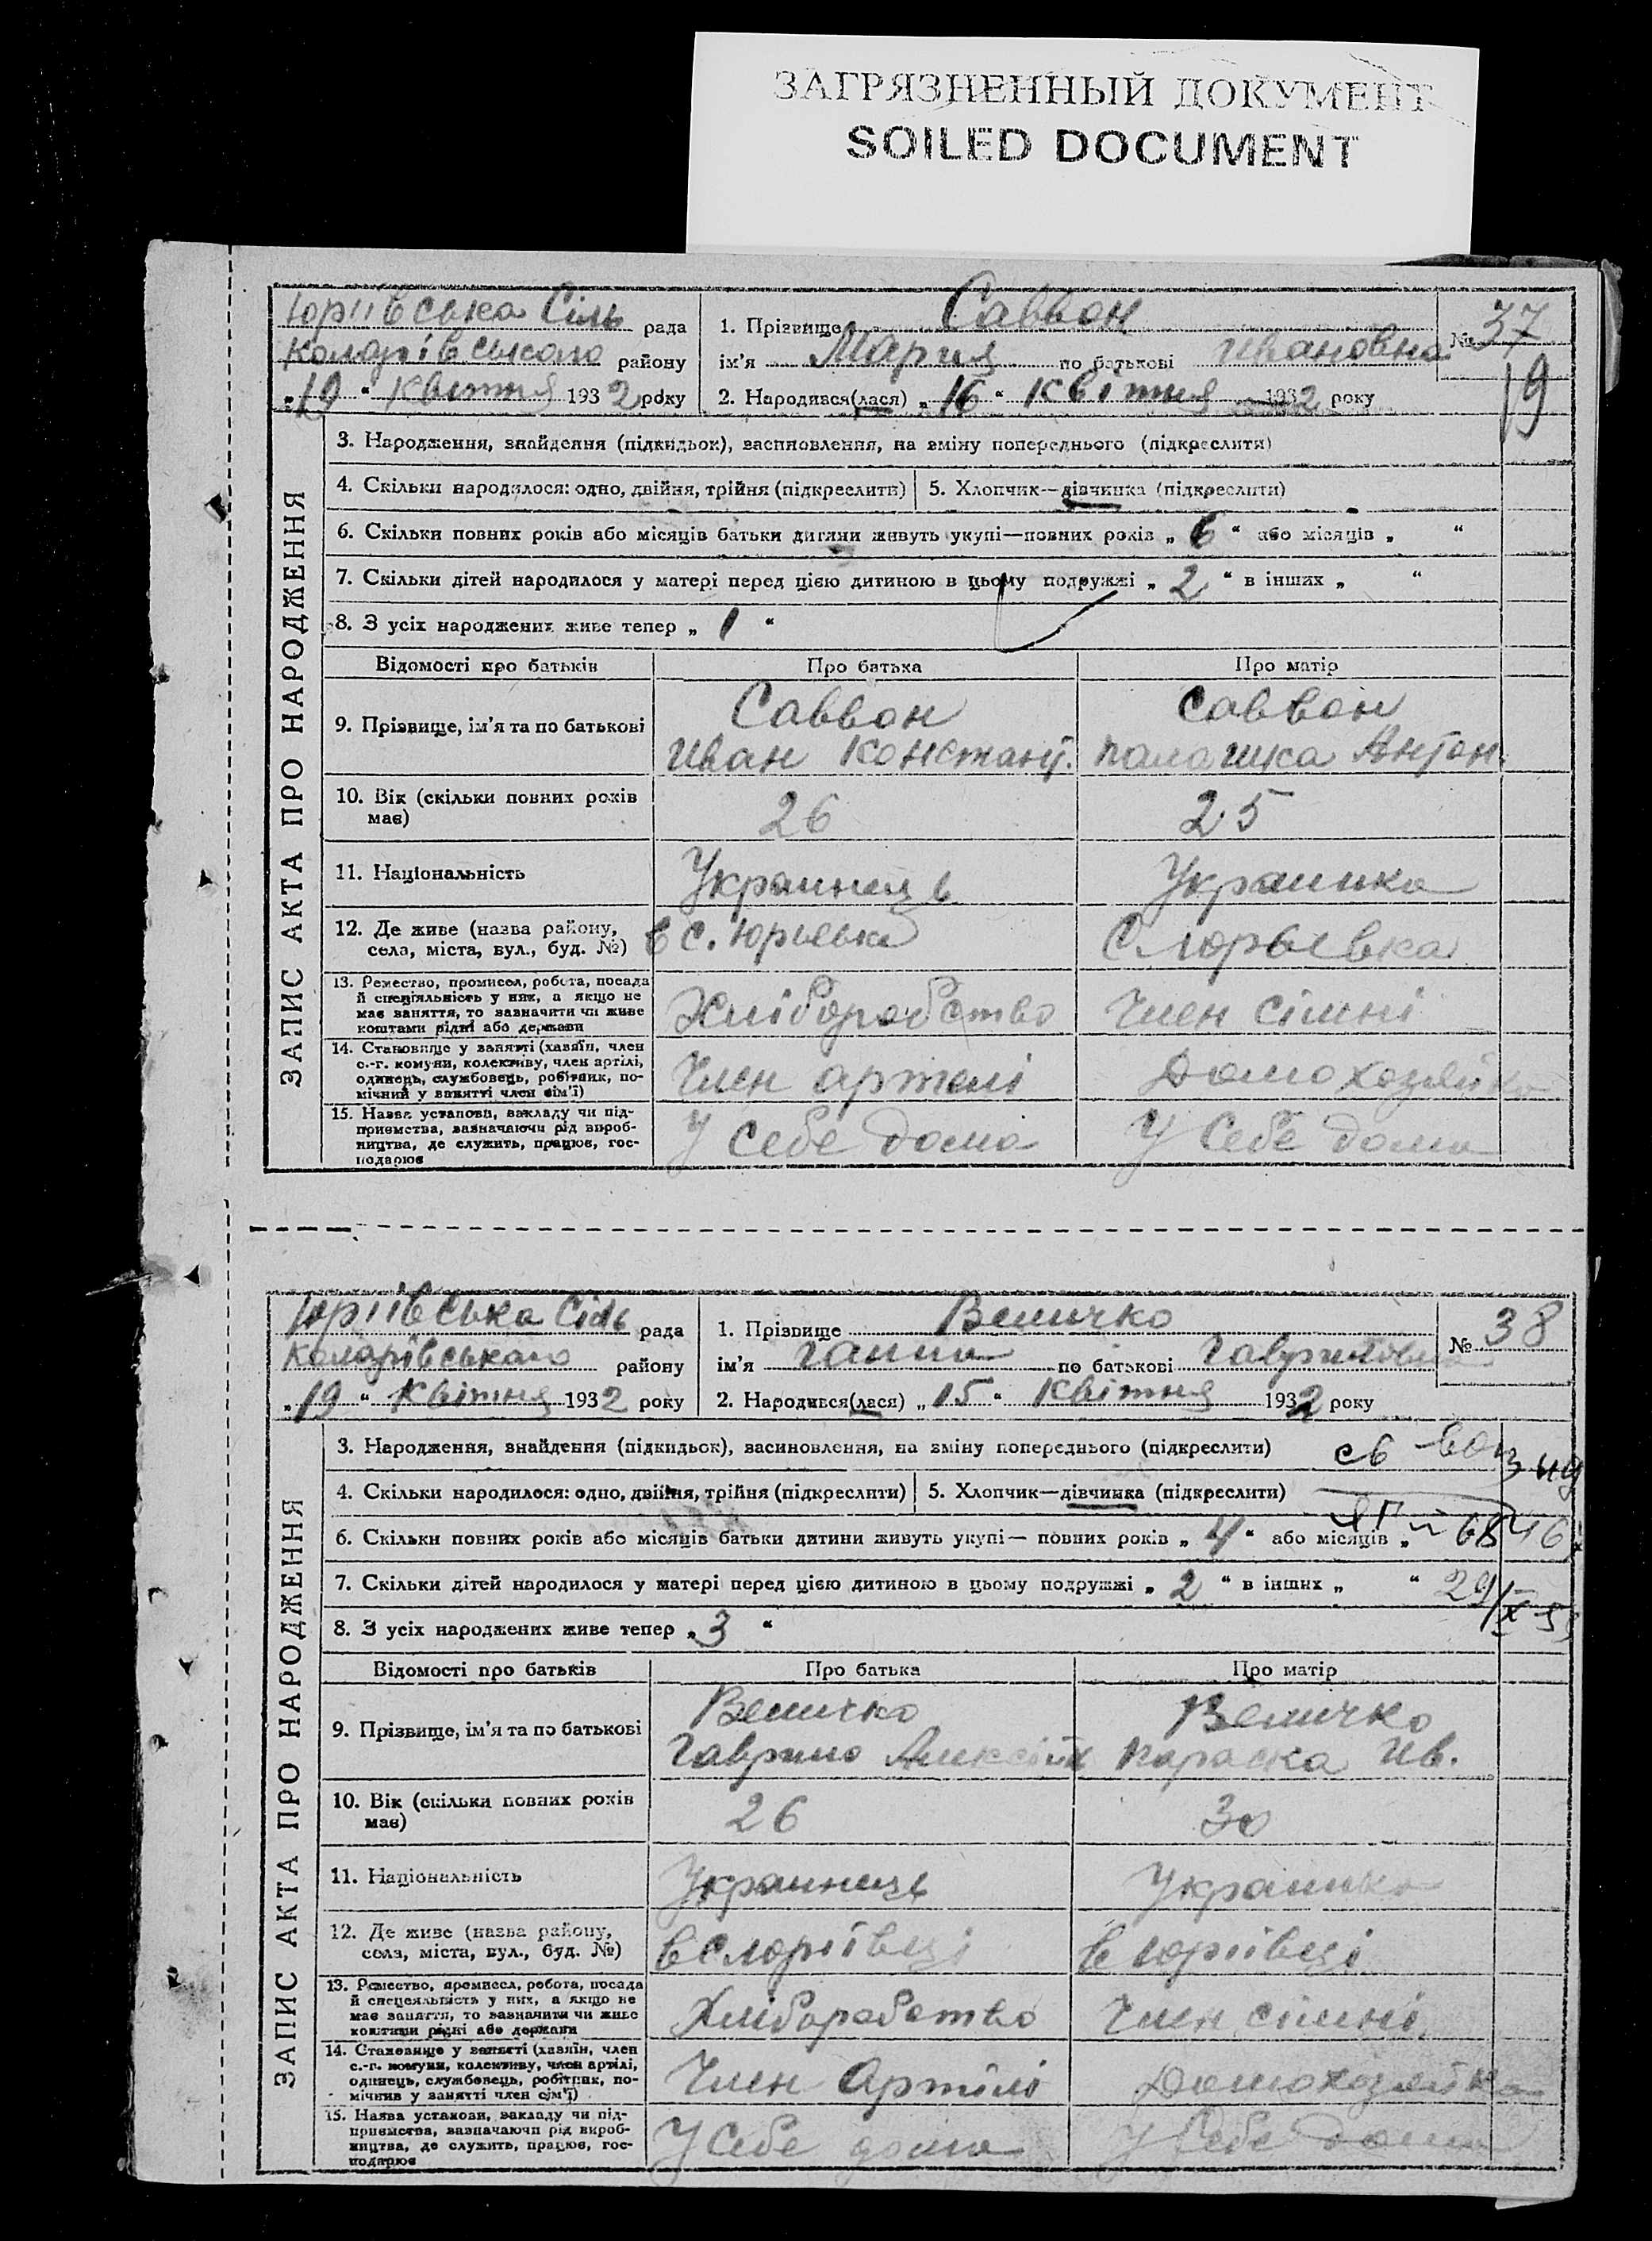 ЗАГРЯЗНЕННЫЙ ДОКУМЕНТ
SOILED DOCUMENT
Юріївська Сіль рада
Коларівського району
„19“ Квітня 1932 року
1. Прізвище Саввон
ім'я Мария по батькові Ивановна
2. Народився(лася) „16“ Квітня 1932 року
№ 37
19
ЗАПИС АКТА ПРО НАРОДЖЕННЯ
3. Народження, знайдення (підкидьок), засиновлення, на зміну попереднього (підкреслити)
4. Скільки народилося: одно, двійня, трійня (підкреслити) 5. Хлопчик—дівчинка (підкреслити)
6. Скільки повних років або місяців батьки дитини живуть укупі—повних років „6“ або місяців „ “
7. Скільки дітей народилося у матері перед цією дитиною в цьому подружжі „2“ в інших „ “
8. З усіх народжених живе тепер „1“
Відомості про батьків Про батька Про матір
9. Прізвище, ім'я та по батькові
Саввон
Иван Констант.
Саввон
Палашка Антон.
10. Вік (скільки повних років
має)
26 25
11. Національність Украинець Украинка
12. Де живе (назва району,
села, міста, вул., буд. №)
в с. Юрьевке
С Юрьевка
13. Ремество, промисел, робота, посада
й спеціяльність у них, а якщо не
має заняття, то зазначити чи живе
коштами рідні або держави
Хліборобство Член сімні
14. Становище у занятті (хазяїн, член
с.-г. комуни, колективу, член артілі,
одинець, службовець, робітник, по-
мічний у занятті член сім'ї)
Член артелі Домохозяйка
15. Назва установи, закладу чи під-
приємства, зазначаючи рід вироб-
ництва, де служить, працює, гос-
подарює
У себе дома У себе дома
Юріївська Сіль рада
Коларівського району
„19“ Квітня 1932 року
1. Прізвище Величко
ім'я Ганна по батькові Гавриловна
2. Народився(лася) „15“ Квітня 1932 року
№ 38
ЗАПИС АКТА ПРО НАРОДЖЕННЯ
3. Народження, знайдення (підкидьок), засиновлення, на зміну попереднього (підкреслити)
4. Скільки народилося: одно, двійня, трійня (підкреслити) 5. Хлопчик—дівчинка (підкреслити)
6. Скільки повних років або місяців батьки дитини живуть укупі— повних років „4“ або місяців „
7. Скільки дітей народилося у матері перед цією дитиною в цьому подружжі „2“ в інших „ “
8. З усіх народжених живе тепер „3“
Відомості про батьків Про батька Про матір
9. Прізвище, ім'я та по батькові
Величко
Гаврило
Величко
Параска Ив.
10. Вік (скільки повних років
має)
26 30
11. Національність Украинець Украинка
12. Де живе (назва району,
села, міста, вул., буд. №)
в С Юріївці
в Юріївці
13. Ремество, промисел, робота, посада
й спецеяльність у них, а якщо не
має заняття, то зазначити чи живе
коштами рідні або держави
Хліборобство Член сімні
14. Становище у занятті (хазяїн, член
с.-г. комуни, колективу, член артілі,
одинець, службовець, робітник, по-
мічник у занятті член сім'ї)
Член Артілі Домохозяйка
15. Назва установи, закладу чи під-
приємства, зазначаючи рід вироб-
ництва, де служить, працює, гос-
подарює
У себе дома У себе дома